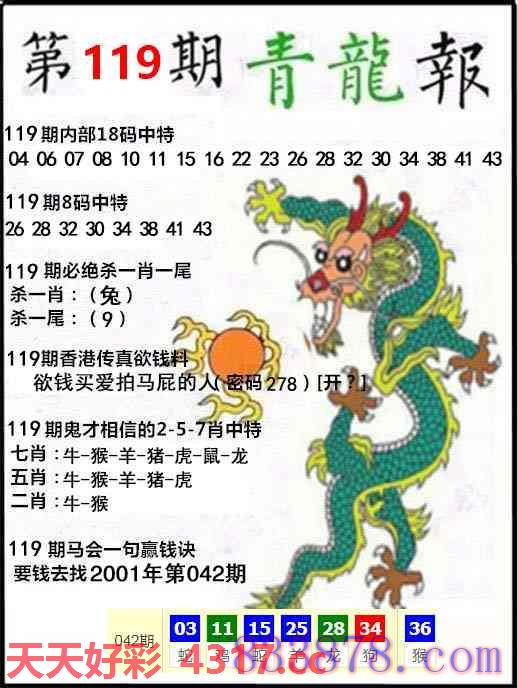 第119期青龍報
119期内部18码中特
04 06 07 08 10 11 15 16 22 23 26 28 32 30 34 38 41 43
119期8码中特
26 28 32 30 34 38 41 43
119期必绝杀一肖一尾
杀一肖：（兔）
杀一尾：（9）
119期香港传真欲钱料
欲钱买爱拍马屁的人（密码278）[开？]
119期鬼才相信的2-5-7肖中特
七肖：牛-猴-羊-猪-虎-鼠-龙
五肖：牛-猴-羊-猪-虎
二肖：牛-猴
119期马会一句赢钱诀
要钱去找2001年第042期
042期 03 11 15 25 28 34 36
蛇 鸡 蛇 羊 龙 狗 猴
天天好彩 4317.cc
878.com